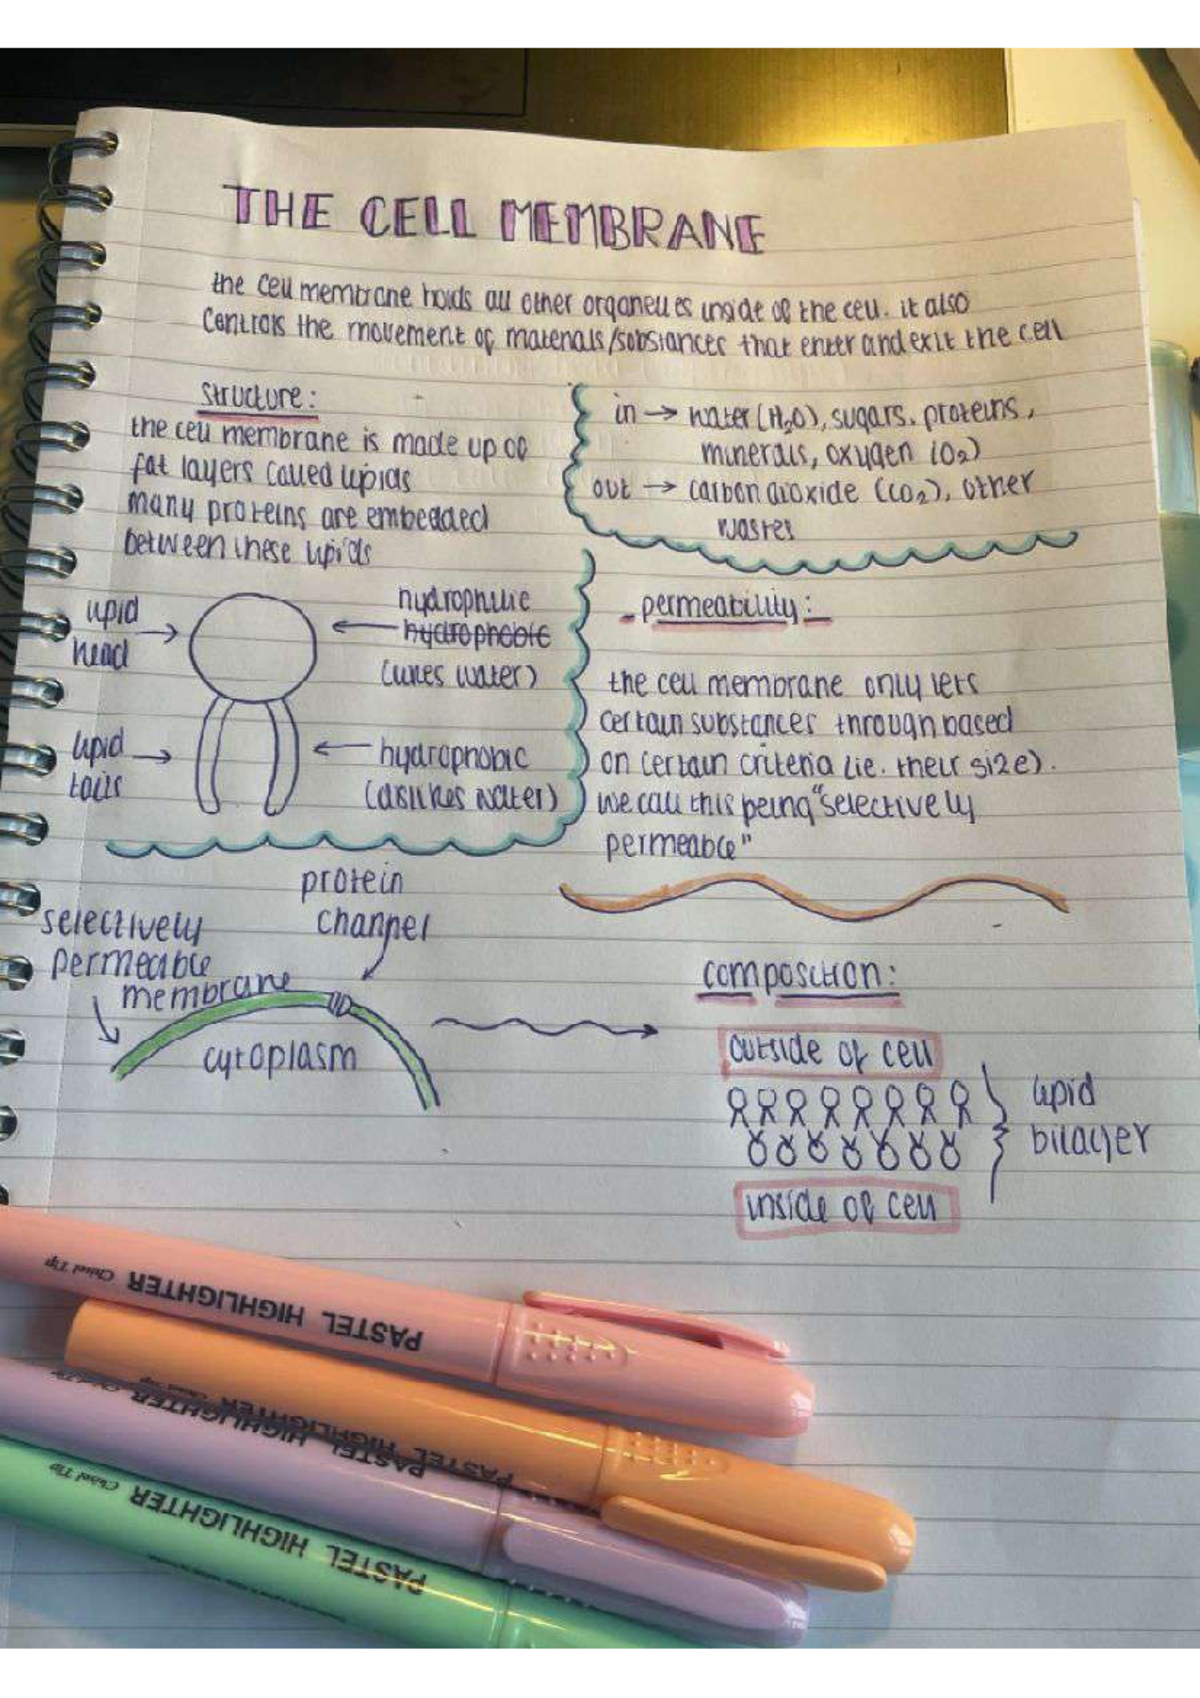 THE CELL MEMBRANE
the cell membrane holds all other organelles inside of the cell. it also
controls the movement of materials/substances that enter and exit the cell
Structure:
the cell membrane is made up of
fat layers called lipids
many proteins are embedded
between these lipids
in → water (H₂O), sugars, proteins,
minerals, oxygen (O₂)
out → carbon dioxide (CO₂), other
wastes
lipid
head
hydrophilic
hydrophobic
(likes water)
lipid
tails
hydrophobic
(dislikes water)
- permeability: -
the cell membrane only lets
certain substances through based
on certain criteria (ie. their size).
we call this being "selectively
permeable"
protein
channel
selectively
permeable
membrane
cytoplasm
composition:
outside of cell
lipid
bilayer
inside of cell
PASTEL HIGHLIGHTER Chisel Tip
PASTEL HIGHLIGHTER Chisel Tip
PASTEL HIGHLIGHTER Chisel Tip
PASTEL HIGHLIGHTER Chisel Tip